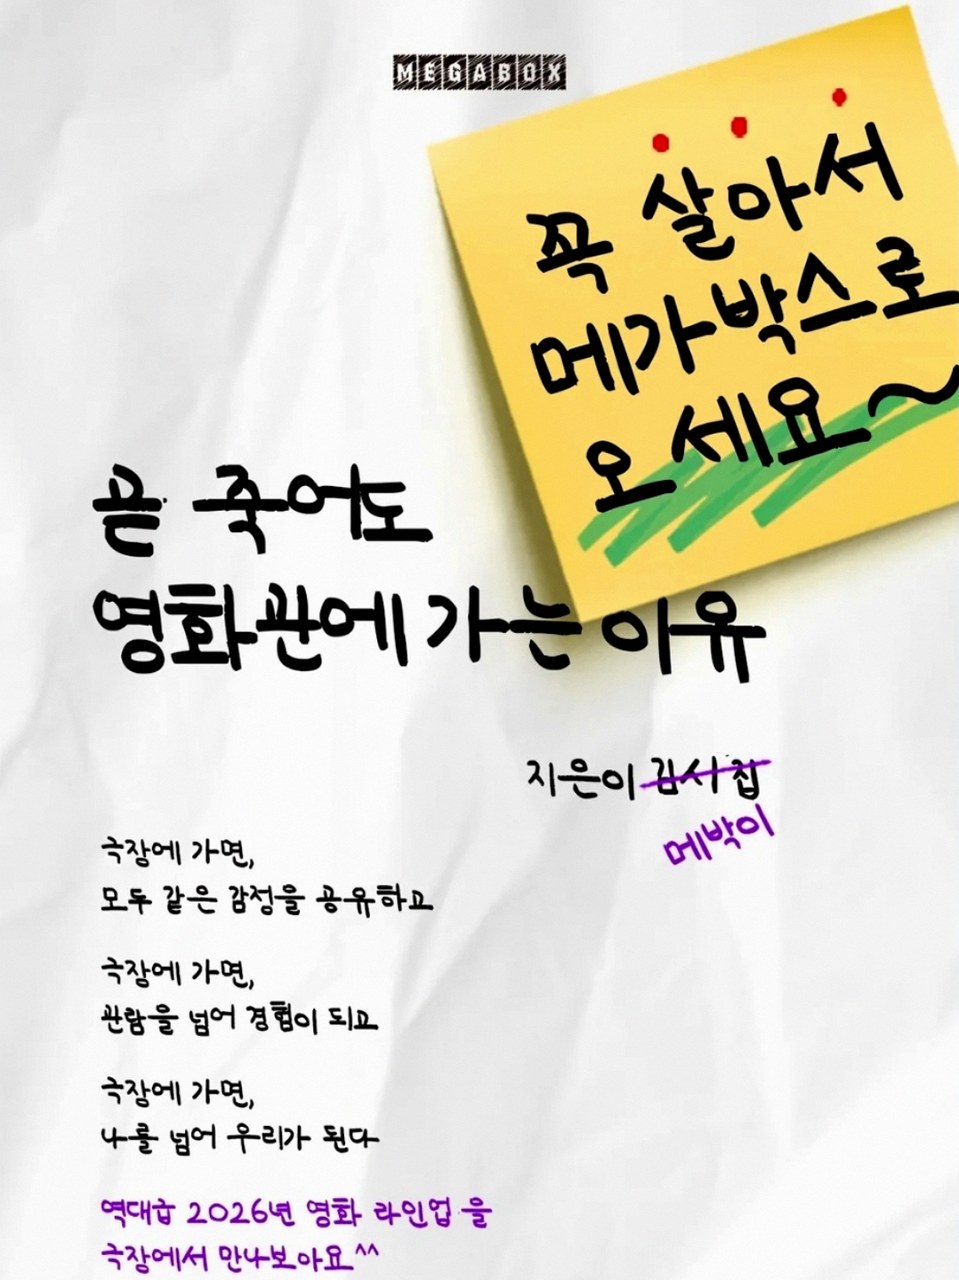 MEGABOX
꼭 살아서
메가박스로
오세요~
곧 죽어도
영화관에 가는 이유
지은이 김시집
메박이
극장에 가면,
모두 같은 감정을 공유하고
극장에 가면,
관람을 넘어 경험이 되고
극장에 가면,
나를 넘어 우리가 된다
역대급 2026년 영화 라인업을
극장에서 만나보아요^^